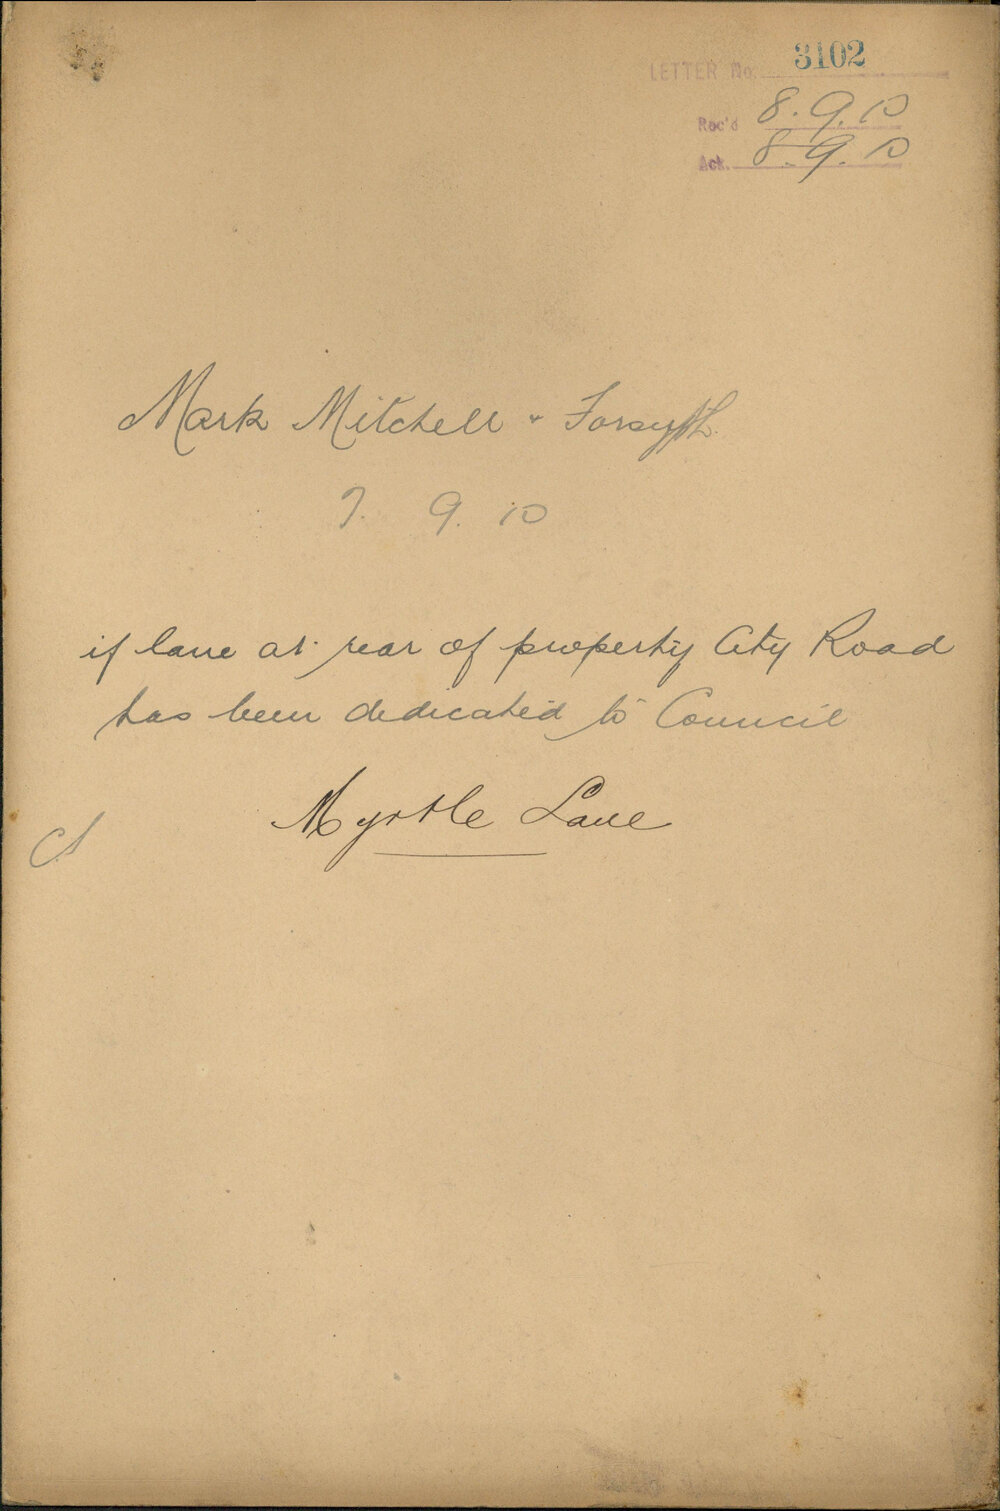 LETTER No. 3102
Rec'd 8.9.10
Ack. 8.9.10
Mark Mitchell & Forsyth.
7. 9. 10
if lane at rear of property City Road
has been dedicated to Council
Myrtle Lane